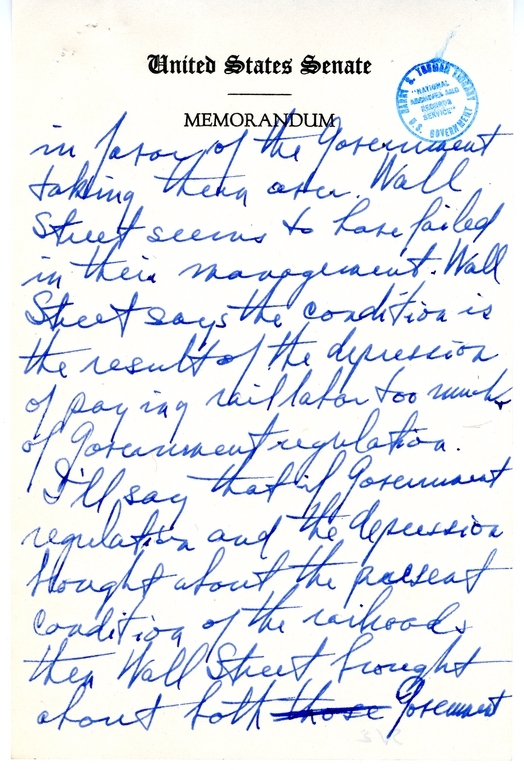 United States Senate
MEMORANDUM
HARRY S. TRUMAN LIBRARY
"NATIONAL
ARCHIVES AND
RECORDS
SERVICE"
U.S. GOVERNMENT
in favor of the Government
taking them over. Wall
Street seems to have failed
in their management. Wall
Street says the condition is
the result of the depression
of paying rail labor too much
of Government regulation.
I'll say that if Government
regulation and the depression
brought about the present
condition of the railroads
then Wall Street brought
about both those Government